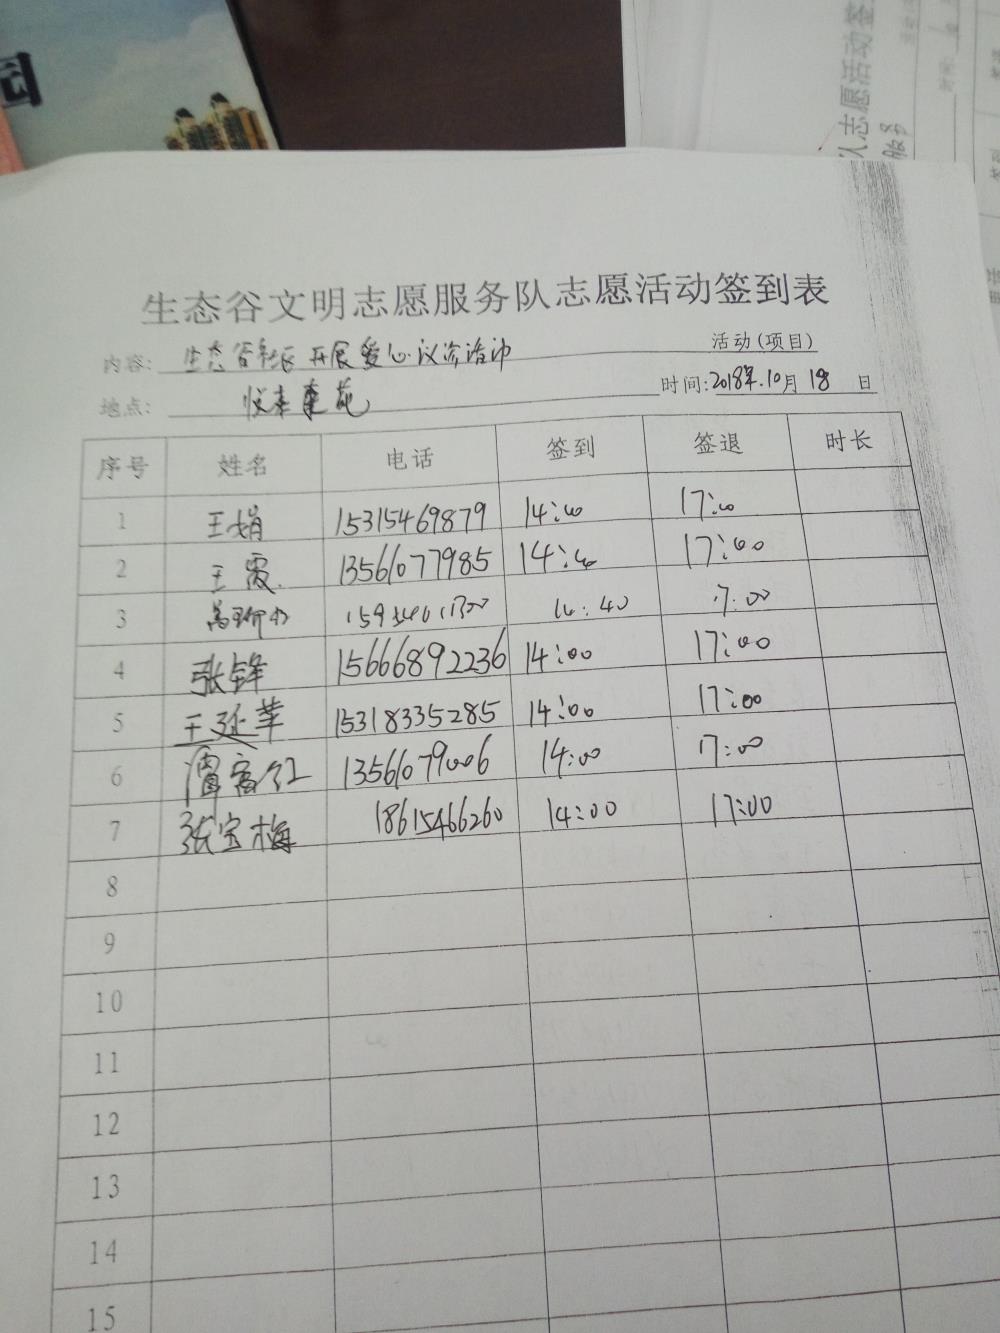 园
志愿活动签
服务
生态谷文明志愿服务队志愿活动签到表
内容: 生态谷社区开展爱心义诊活动 活动(项目)
地点: 时间:2018年.10月18日
序号 姓名 电话 签到 签退 时长
1 王娟 15315469879 14:00 17:00
2 王霞 13561077985 14:00 17:00
3 14:40 17:00
4 张锋 15666892236 14:00 17:00
5 王延苹 15318335285 14:00 17:00
6 13561079006 14:00 17:00
7 张宝梅 18615466260 14:00 17:00
8
9
10
11
12
13
14
15